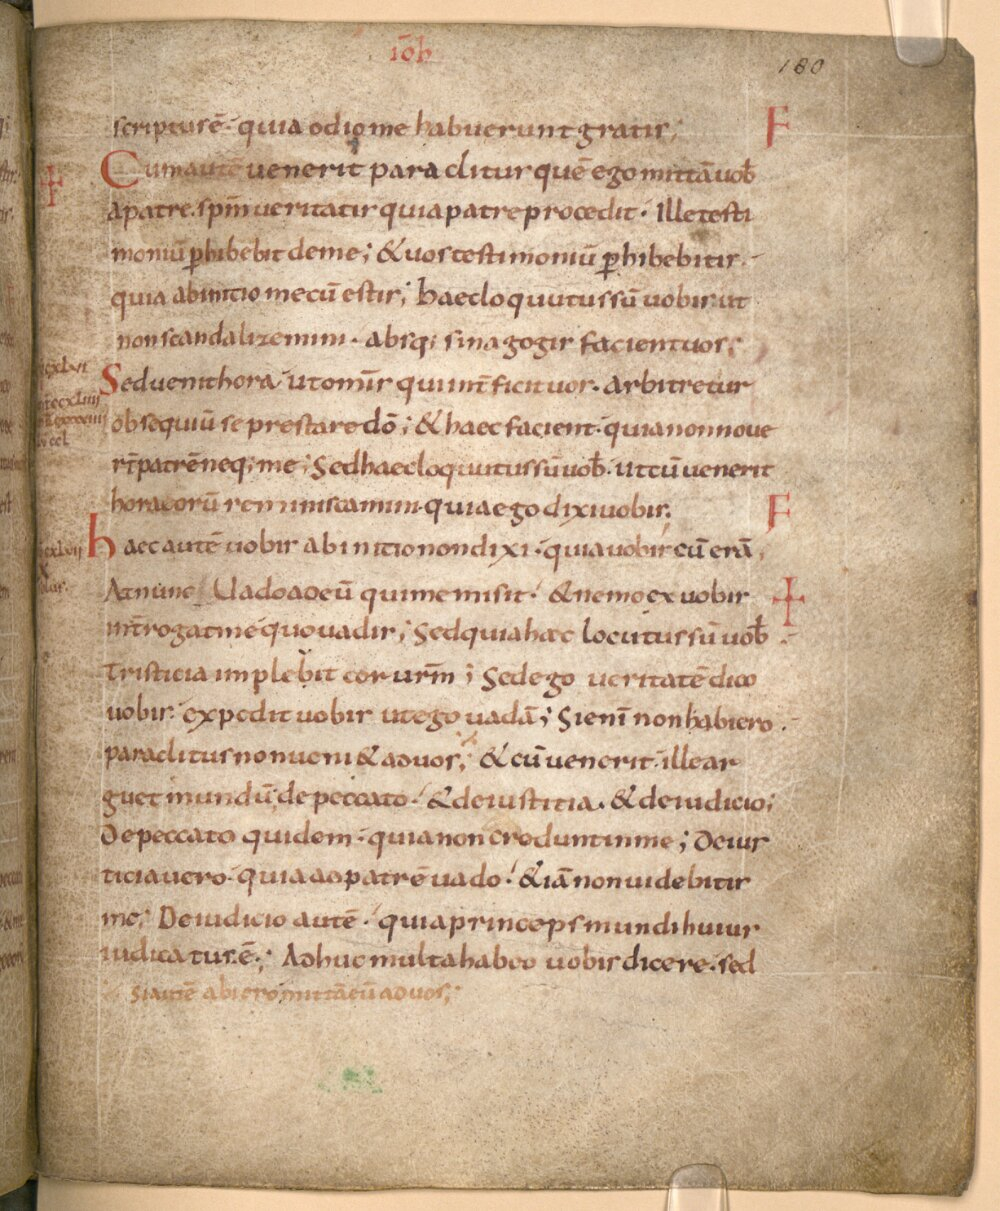 iōh
180
scriptūrē · quia odio me habuerunt gratis; F
Cum autē venerit paraclitus quē ego mittā uob̄
a patre · sp̄m ueritatis qui a patre procedit · Ille testi
moniū phibebit de me; & uos testimoniū phibebitis ·
quia ab initio mecū estis; haec loquutus sū uobis ut
non scandalizemini · absq; sinagogis facient uos;
Sed uenit hora · ut omīs qui int̄ficit uos · arbitretur
obsequiū se prestare dō; & haec facient · quia non noue
rt̄ patrē neq; me; Sed haec loquutus sū uob̄ · ut cū uenerit
hora eorū reminiscamini · quia ego dixi uobis · F
haec autē uobis ab initio non dixi · quia uobiscū erā
At nunc Uado ad eū qui me misit · & nemo ex uobis
int̄rogat me quo uadis; Sed quia haec locutus sū uob̄ ·
Tristicia implebit cor urm̄; Sed ego ueritatē dico
uobis · expedit uobis ut ego uadā; Si eni non habiero ·
paraclitus non ueni& ad uos; & cū uenerit · ille ar
guet mundū; de peccato · & de iustitia · & de iudicio;
De peccato quidem · quia non credunt in me; De ius
ticia uero · quia ad patrē uado · & iā non uidebitis
me; De iudicio autē · quia princeps mundi huius
iudicatus ē; Adhuc multa habeo uobis dicere · sed
Si autē abiero mittā eū ad uos;